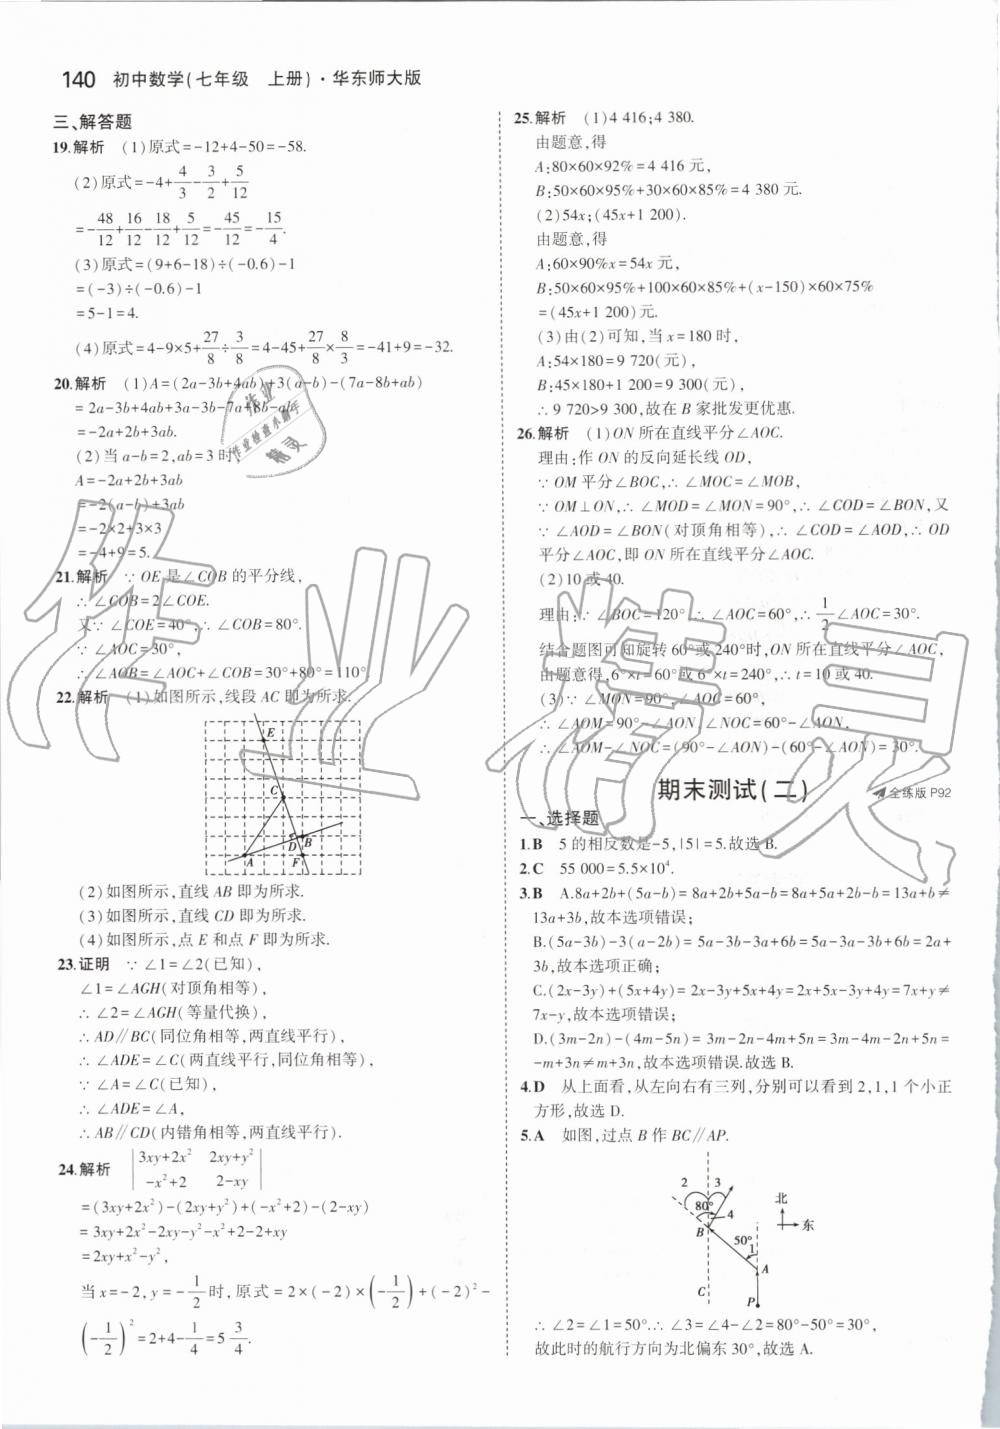 140 初中数学(七年级 上册)·华东师大版
三、解答题
19.解析 (1)原式=-12+4-50=-58.
(2)原式=-4+4/3-3/2+5/12
=-48/12+16/12-18/12+5/12=-45/12=-15/4.
(3)原式=(9+6-18)÷(-0.6)-1
=(-3)÷(-0.6)-1
=5-1=4.
(4)原式=4-9×5+27/8÷3/8=4-45+27/8×8/3=-41+9=-32.
20.解析 (1)A=(2a-3b+4ab)+3(a-b)-(7a-8b+ab)
=2a-3b+4ab+3a-3b-7a+8b-ab
=-2a+2b+3ab.
(2)当a-b=2,ab=3时,
A=-2a+2b+3ab
=-2(a-b)+3ab
=-2×2+3×3
=-4+9=5.
21.解析 ∵OE是∠COB的平分线,
∴∠COB=2∠COE.
又∵∠COE=40°,∴∠COB=80°.
∵∠AOC=30°,
∴∠AOB=∠AOC+∠COB=30°+80°=110°.
22.解析 (1)如图所示,线段AC即为所求.
E
C
D B
A F
(2)如图所示,直线AB即为所求.
(3)如图所示,直线CD即为所求.
(4)如图所示,点E和点F即为所求.
23.证明 ∵∠1=∠2(已知),
∠1=∠AGH(对顶角相等),
∴∠2=∠AGH(等量代换),
∴AD∥BC(同位角相等,两直线平行),
∴∠ADE=∠C(两直线平行,同位角相等),
∵∠A=∠C(已知),
∴∠ADE=∠A,
∴AB∥CD(内错角相等,两直线平行).
24.解析 |3xy+2x² 2xy+y²|
|-x²+2 2-xy|
=(3xy+2x²)-(2xy+y²)+(-x²+2)-(2-xy)
=3xy+2x²-2xy-y²-x²+2-2+xy
=2xy+x²-y²,
当x=-2,y=-1/2时,原式=2×(-2)×(-1/2)+(-2)²-
(-1/2)²=2+4-1/4=5 3/4.
25.解析 (1)4 416;4 380.
由题意,得
A:80×60×92%=4 416元,
B:50×60×95%+30×60×85%=4 380元.
(2)54x;(45x+1 200).
由题意,得
A:60×90%x=54x元,
B:50×60×95%+100×60×85%+(x-150)×60×75%
=(45x+1 200)元.
(3)由(2)可知,当x=180时,
A:54×180=9 720(元),
B:45×180+1 200=9 300(元),
∴9 720>9 300,故在B家批发更优惠.
26.解析 (1)ON所在直线平分∠AOC.
理由:作ON的反向延长线OD,
∵OM平分∠BOC,∴∠MOC=∠MOB,
∵OM⊥ON,∴∠MOD=∠MON=90°,∴∠COD=∠BON,又
∵∠AOD=∠BON(对顶角相等),∴∠COD=∠AOD,∴OD
平分∠AOC,即ON所在直线平分∠AOC.
(2)10或40.
理由:∵∠BOC=120°,∴∠AOC=60°,∴1/2∠AOC=30°.
结合题图可知旋转60°或240°时,ON所在直线平分∠AOC,
由题意得,6°×t=60°或6°×t=240°,∴t=10或40.
(3)∵∠MON=90°,∠AOC=60°,
∴∠AOM=90°-∠AON,∠NOC=60°-∠AON.
∴∠AOM-∠NOC=(90°-∠AON)-(60°-∠AON)=30°.
期末测试(二) 全练版P92
一、选择题
1.B 5的相反数是-5,|5|=5.故选B.
2.C 55 000=5.5×10⁴.
3.B A.8a+2b+(5a-b)=8a+2b+5a-b=8a+5a+2b-b=13a+b≠
13a+3b,故本选项错误;
B.(5a-3b)-3(a-2b)=5a-3b-3a+6b=5a-3a-3b+6b=2a+
3b,故本选项正确;
C.(2x-3y)+(5x+4y)=2x-3y+5x+4y=2x+5x-3y+4y=7x+y≠
7x-y,故本选项错误;
D.(3m-2n)-(4m-5n)=3m-2n-4m+5n=3m-4m-2n+5n=
-m+3n≠m+3n,故本选项错误.故选B.
4.D 从上面看,从左向右有三列,分别可以看到2,1,1个小正
方形,故选D.
5.A 如图,过点B作BC∥AP.
2 3
80°
4
B
50°
1
A
C
P
北
东
∴∠2=∠1=50°.∴∠3=∠4-∠2=80°-50°=30°,
故此时的航行方向为北偏东30°,故选A.
作业精灵
作业
作业检查小助手
精灵